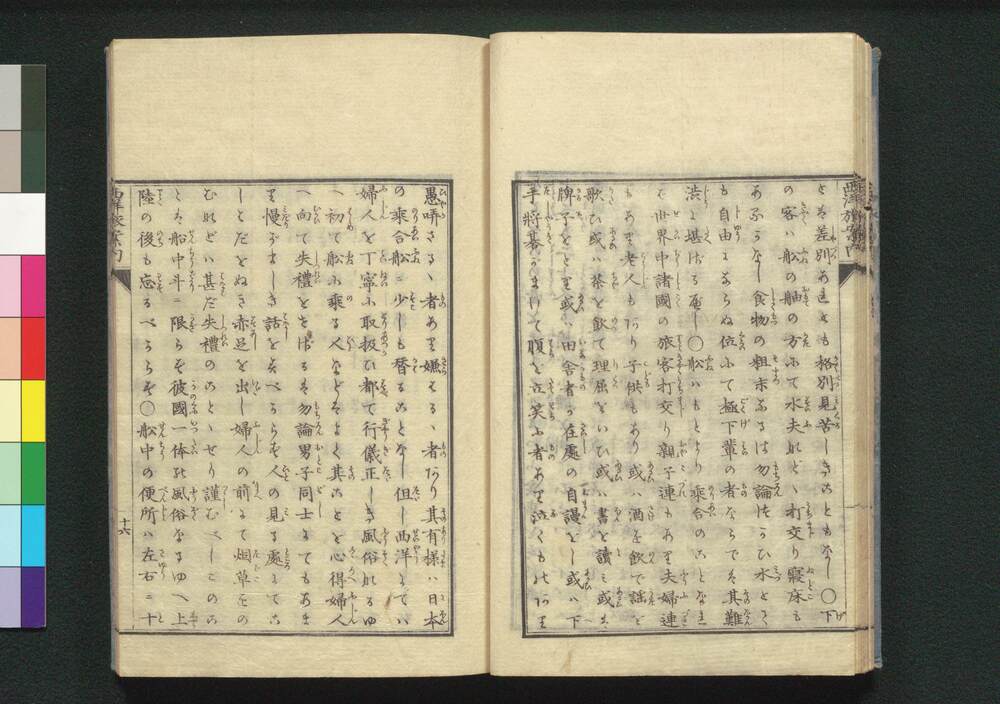 とは差別あれども格別見苦しきこともなし〇下
の客ハ船の舳の方にて水夫などゝ打交り寝床も
あるかなし食物の粗末なるは勿論つかひ水とて
も自由にならぬ位にて極下輩の者ならでは其難
渋に堪ざる程なり〇船ハもとより乗合のことなれ
ば世界中諸國の旅客打交り親子連もあり夫婦連
もあり老人もあり子供もあり或ハ酒を飲て謡を
歌ひ或ハ茶を飲て理屈をいひ或ハ書を讀ミ或ハ
牌子をとり或ハ田舎者が在處の自謾をし或ハ下
手將棊がまけて腹を立笑ふ者あり泣くものあり
西洋旅案内
愚弄さるゝ者あり嫌はるゝ者あり其有様ハ日本
の乗合船ニ少しも替ることなし但し西洋にてハ
婦人を丁寧に取扱ひ都て行儀正しき風俗なるゆ
へ初て船に乗る人などはよく其ことを心得婦人
へ向て失禮をせざるは勿論男子同士にてもあま
り慢がましき話をすべからず人の見る處にてこ
しとだをぬき赤足を出し婦人の前にて烟草をの
むなどハ甚だ失禮のことゝせり謹むべしこのこ
とは船中斗ニ限らず彼國一体の風俗なるゆへ上
陸の後も忘るべからず〇船中の便所ハ左右ニ十
西洋旅案内
十六